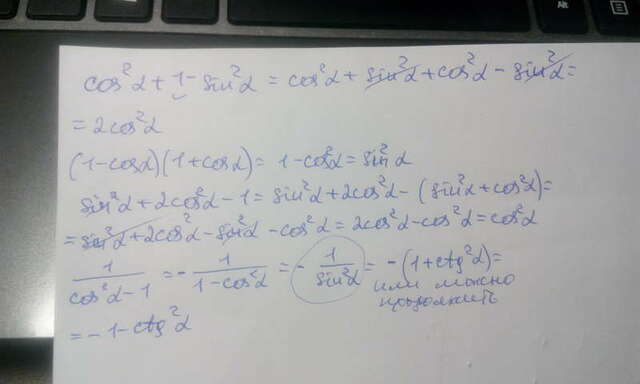 cos²α + 1 - sin²α = cos²α + sin²α + cos²α - sin²α =
= 2cos²α
(1-cosα)(1+cosα) = 1-cos²α = sin²α
sin²α + 2cos²α - 1 = sin²α + 2cos²α - (sin²α + cos²α) =
= sin²α + 2cos²α - sin²α - cos²α = 2cos²α - cos²α = cos²α
1/(cos²α - 1) = - 1/(1-cos²α) = - 1/sin²α = -(1+ctg²α) =
или можно
продолжить
= -1-ctg²α
Alt